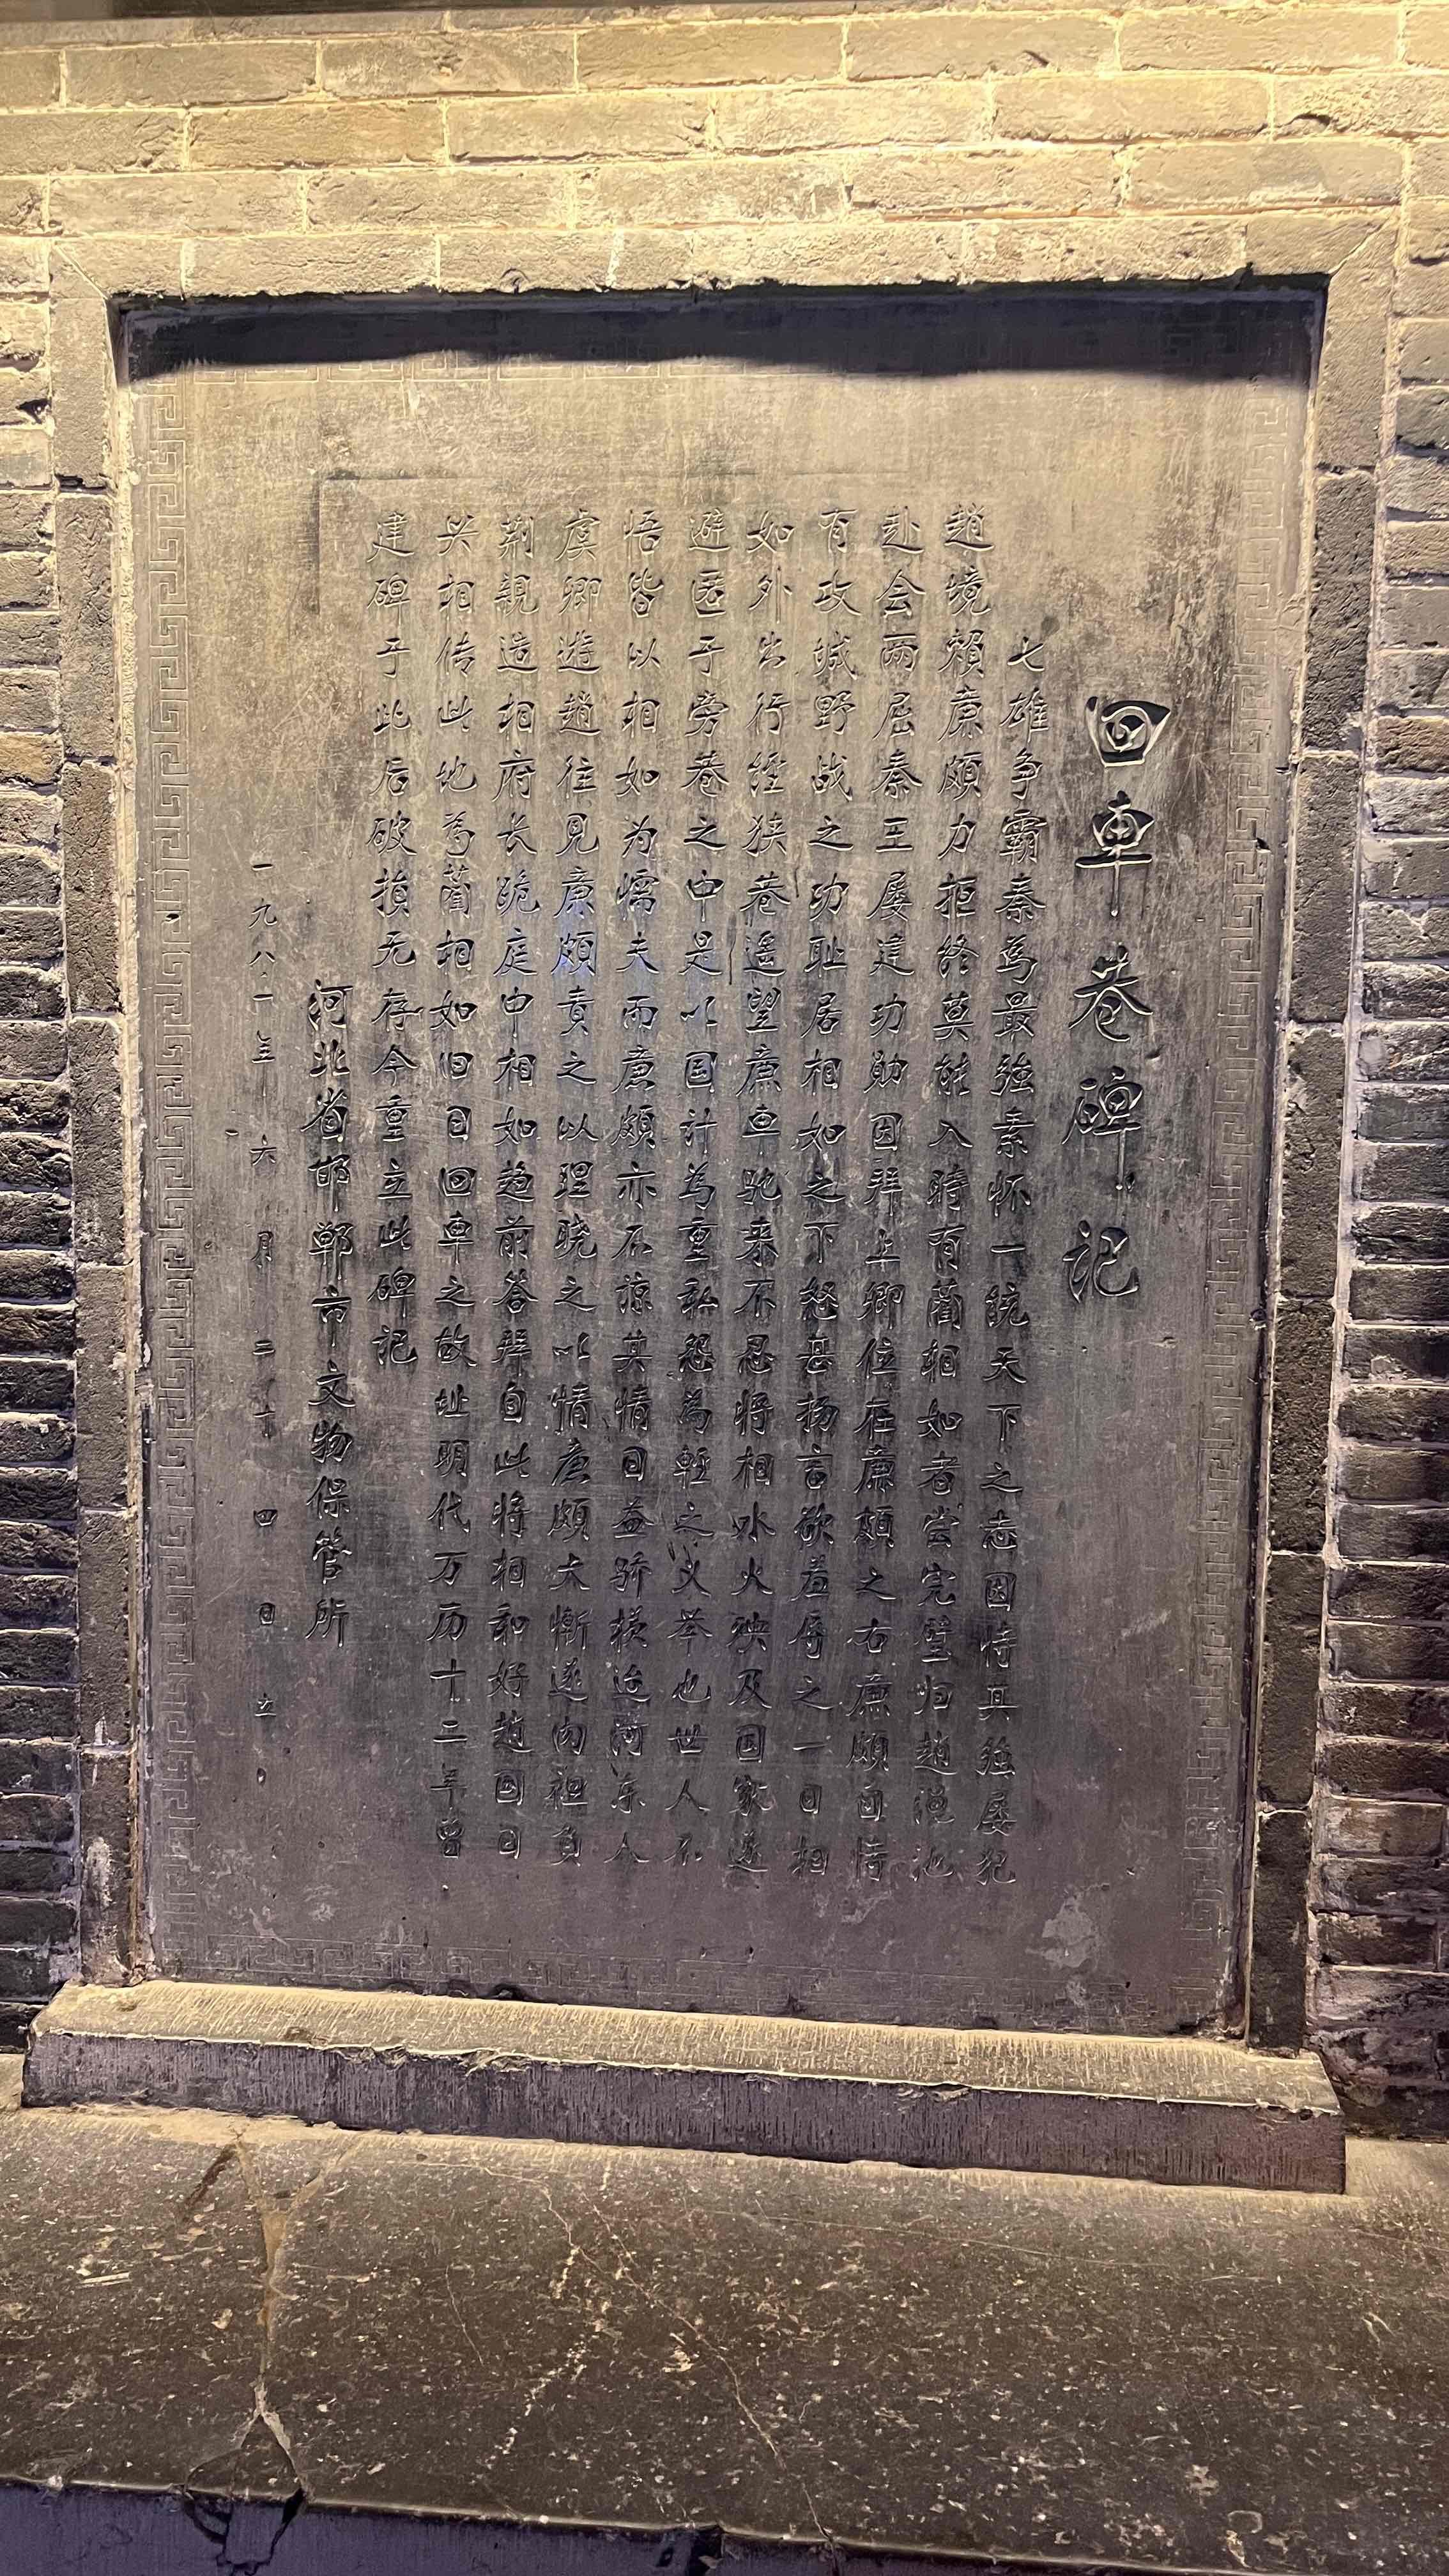 回車巷碑记
七雄争霸秦為最强素怀一統天下之志因恃其强屡犯
趙境賴廉頗力拒终莫能入時有藺相如者尝完璧归趙渑池
赴会两屈秦王屡建功勋因拜上卿位在廉頗之右廉頗自恃
有攻城野战之功耻居相如之下怒甚扬言欲羞辱之一日相
如外出行经狭巷遥望廉車驰来不忍将相水火殃及国家遂
避匿于旁巷之中是以国计為重私怨為輕之义举也世人不
悟皆以相如为懦夫而廉頗亦不諒其情日益骄横迨河东人
虞卿遊趙往見廉頗责之以理晓之以情廉頗大慚遂肉袒負
荆親造相府长跪庭中相如趋前答拜自此将相和好趙国日
兴相传此地為藺相如旧日回車之故址明代万历十二年曾
建碑于此后破损无存今重立此碑记
河北省邯郸市文物保管所
一九八一年六月二十四日立